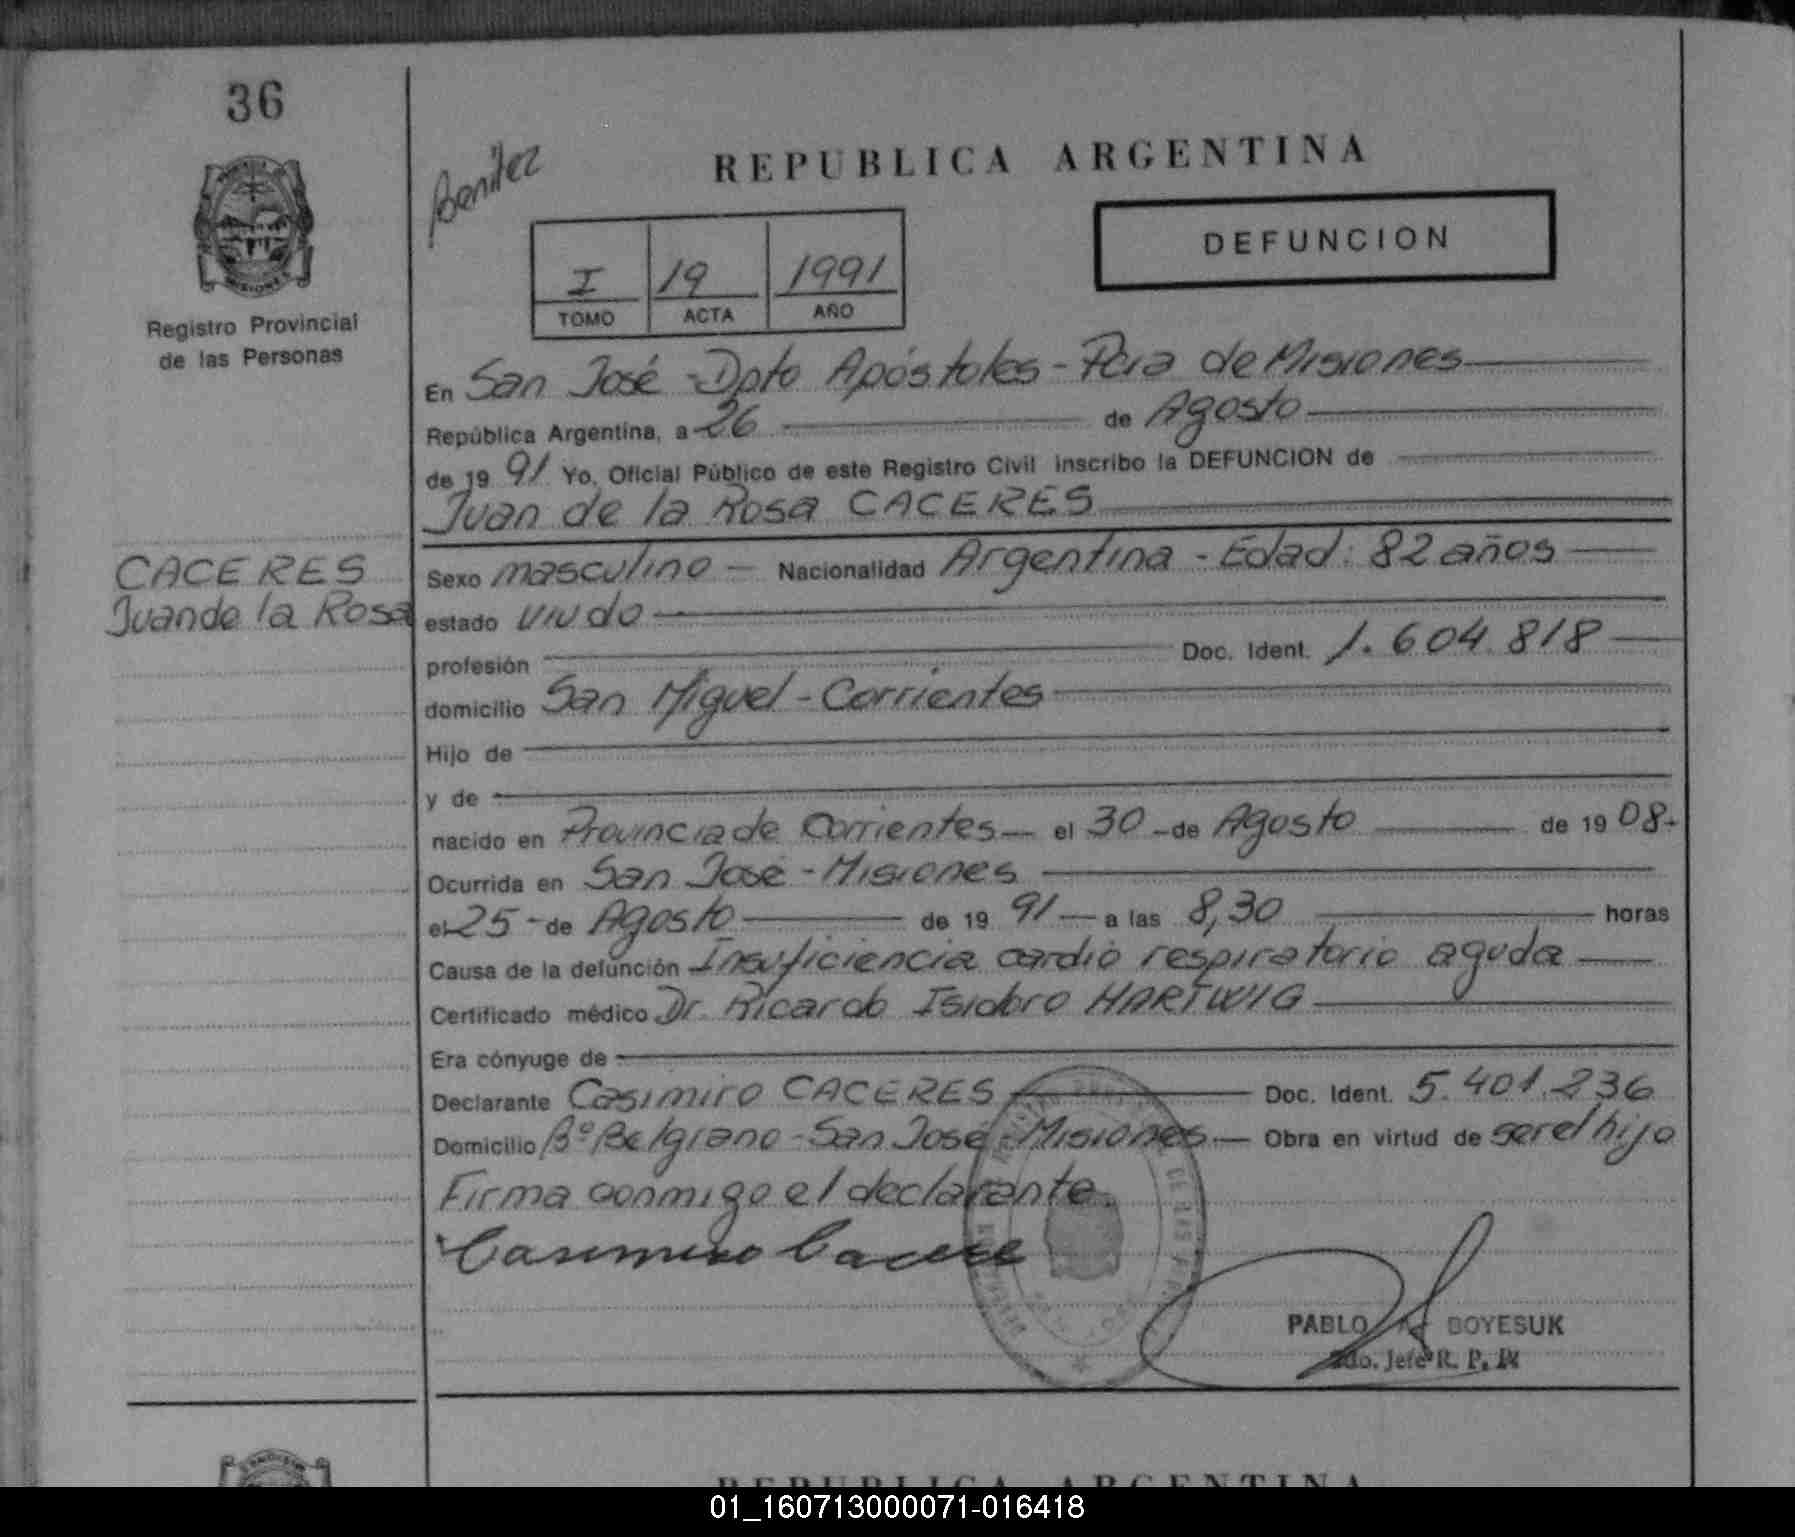 36
Benitez
REPUBLICA ARGENTINA
DEFUNCION
I 19 1991
TOMO ACTA AÑO
Registro Provincial
de las Personas
En San José - Dpto Apóstoles - Pcia de Misiones
República Argentina, a 26 de Agosto
de 19 91 Yo, Oficial Público de este Registro Civil inscribo la DEFUNCION de
Juan de la Rosa CACERES
CACERES
Juan de la Rosa
Sexo masculino - Nacionalidad Argentina - Edad: 82 años
estado viudo
profesión Doc. Ident. 1.604.818
domicilio San Miguel - Corrientes
Hijo de
y de
nacido en Provincia de Corrientes - el 30 - de Agosto de 19 08-
Ocurrida en San José - Misiones
el 25 - de Agosto de 19 91 - a las 8,30 horas
Causa de la defunción Insuficiencia cardio respiratorio aguda
Certificado médico Dr. Ricardo Isidoro HARTWIG
Era cónyuge de
Declarante Casimiro CACERES Doc. Ident. 5.401.236
Domicilio Bº Belgrano - San José - Misiones - Obra en virtud de ser el hijo
Firma conmigo el declarante.
Casimiro Cacere
PABLO BOYESUK
2do. Jefe R. P. P.
REPUBLICA ARGENTINA
01_160713000071-016418